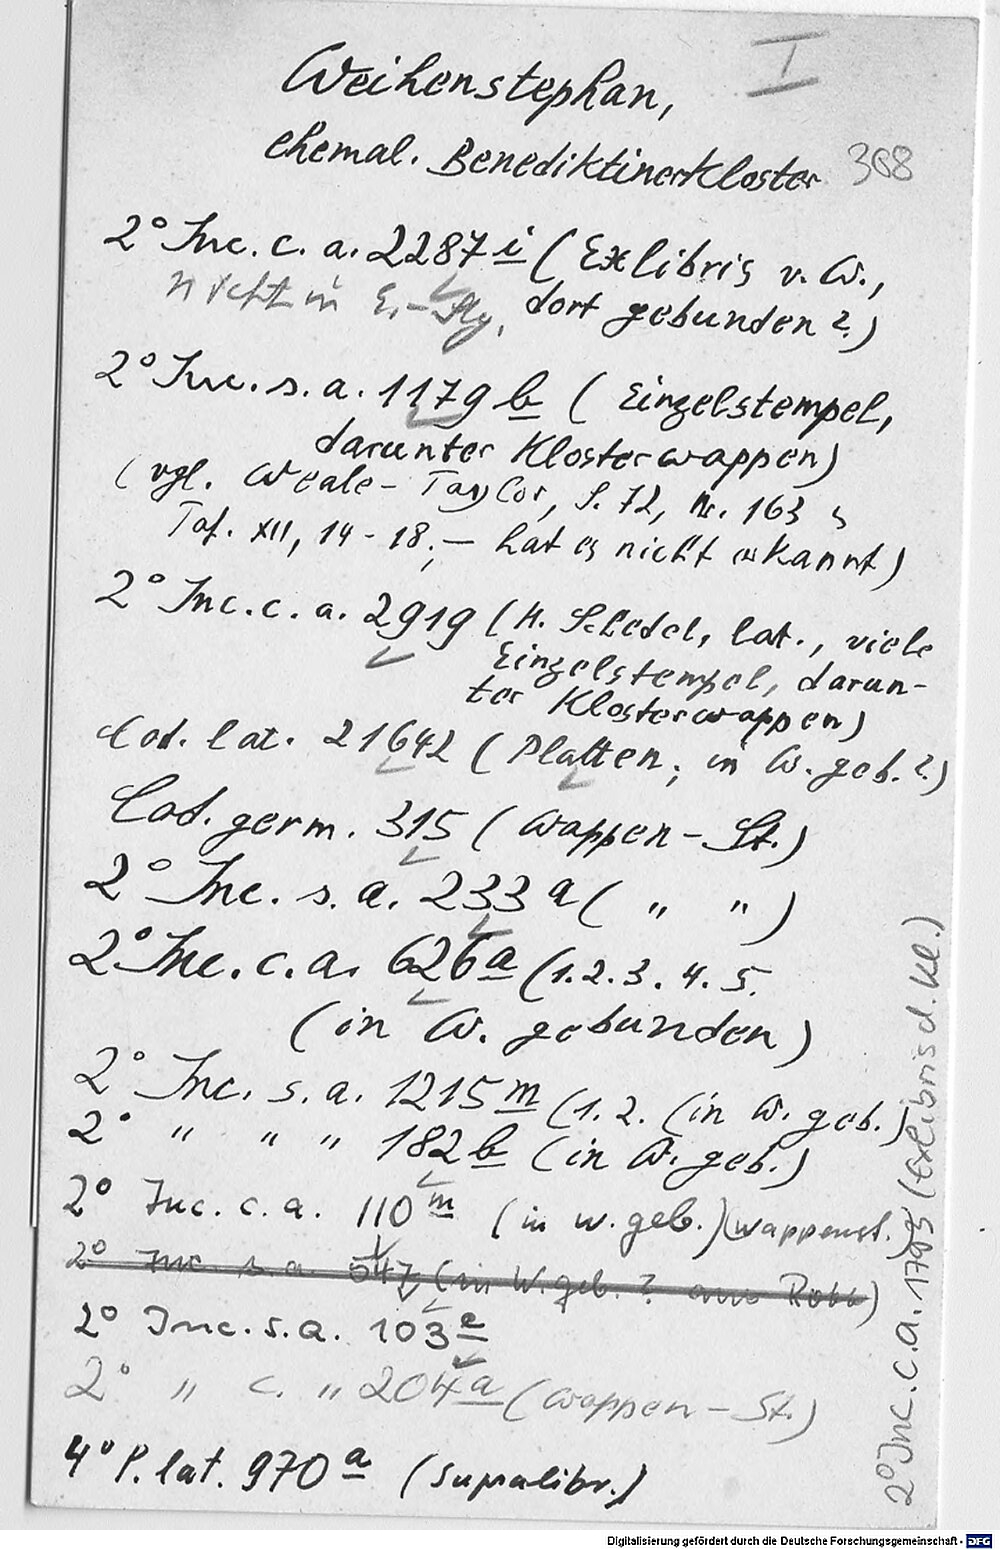 I
Weihenstephan,
ehemal. Benediktinerkloster 308
2° Inc. c. a. 2287 i (Exlibris v. W.,
nicht in E.- dort gebunden?)
2° Inc. s. a. 1179 b (Einzelstempel,
darunter Klosterwappen)
(vgl. Weale-Taylor, S. 72, Nr. 163
Taf. XII, 14-18; - hat es nicht erkannt)
2° Inc. c. a. 2919 (H. Schedel, lat., viele
Einzelstempel, darun-
ter Klosterwappen)
Cod. lat. 21642 (Platten; in W. geb.?)
Cod. germ. 315 (Wappen-St.)
2° Inc. s. a. 233 a ( " " )
2° Inc. c. a. 626 a (1. 2. 3. 4. 5.
(in W. gebunden)
2° Inc. s. a. 1215 m (1. 2. (in W. geb.)
2° " " " 182 b (in W. geb.)
2° Inc. c. a. 110 m (in W. geb.) (Wappenst.)
2° Inc. s. a. 547 (in W. geb.? aus
2° Inc. s. a. 103 e
2° " c. " 204 a (Wappen-St.)
4° P. lat. 970 a (Supralibr.)
2° Inc. c. a. (Exlibris d. Kl.)
Digitalisierung gefördert durch die Deutsche Forschungsgemeinschaft - DFG